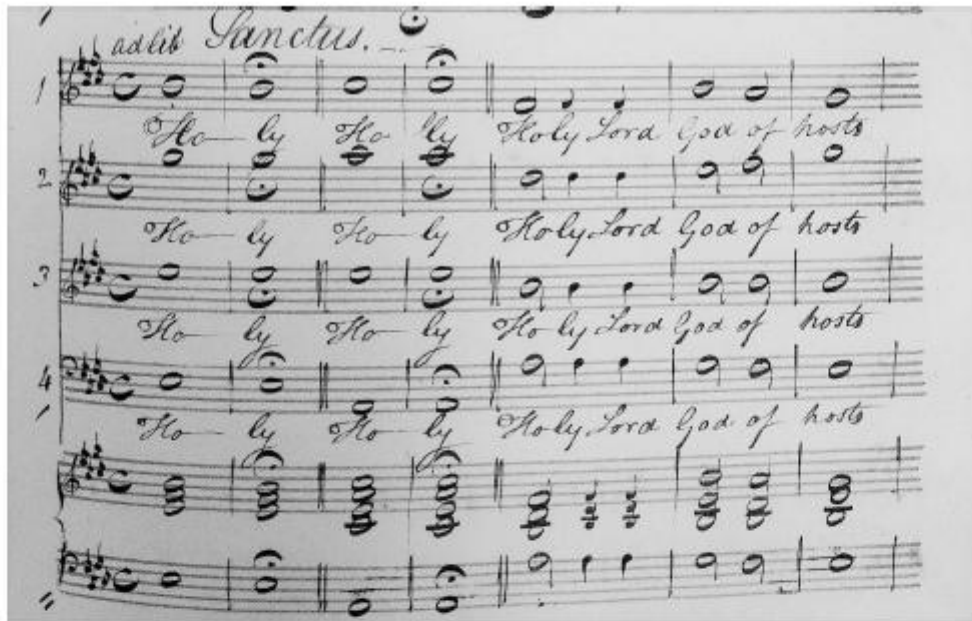 ad lib Sanctus.
1
Ho-ly Ho-ly Holy Lord God of hosts
2
Ho-ly Ho-ly Holy Lord God of hosts
3
Ho-ly Ho-ly Holy Lord God of hosts
4
Ho-ly Ho-ly Holy Lord God of hosts